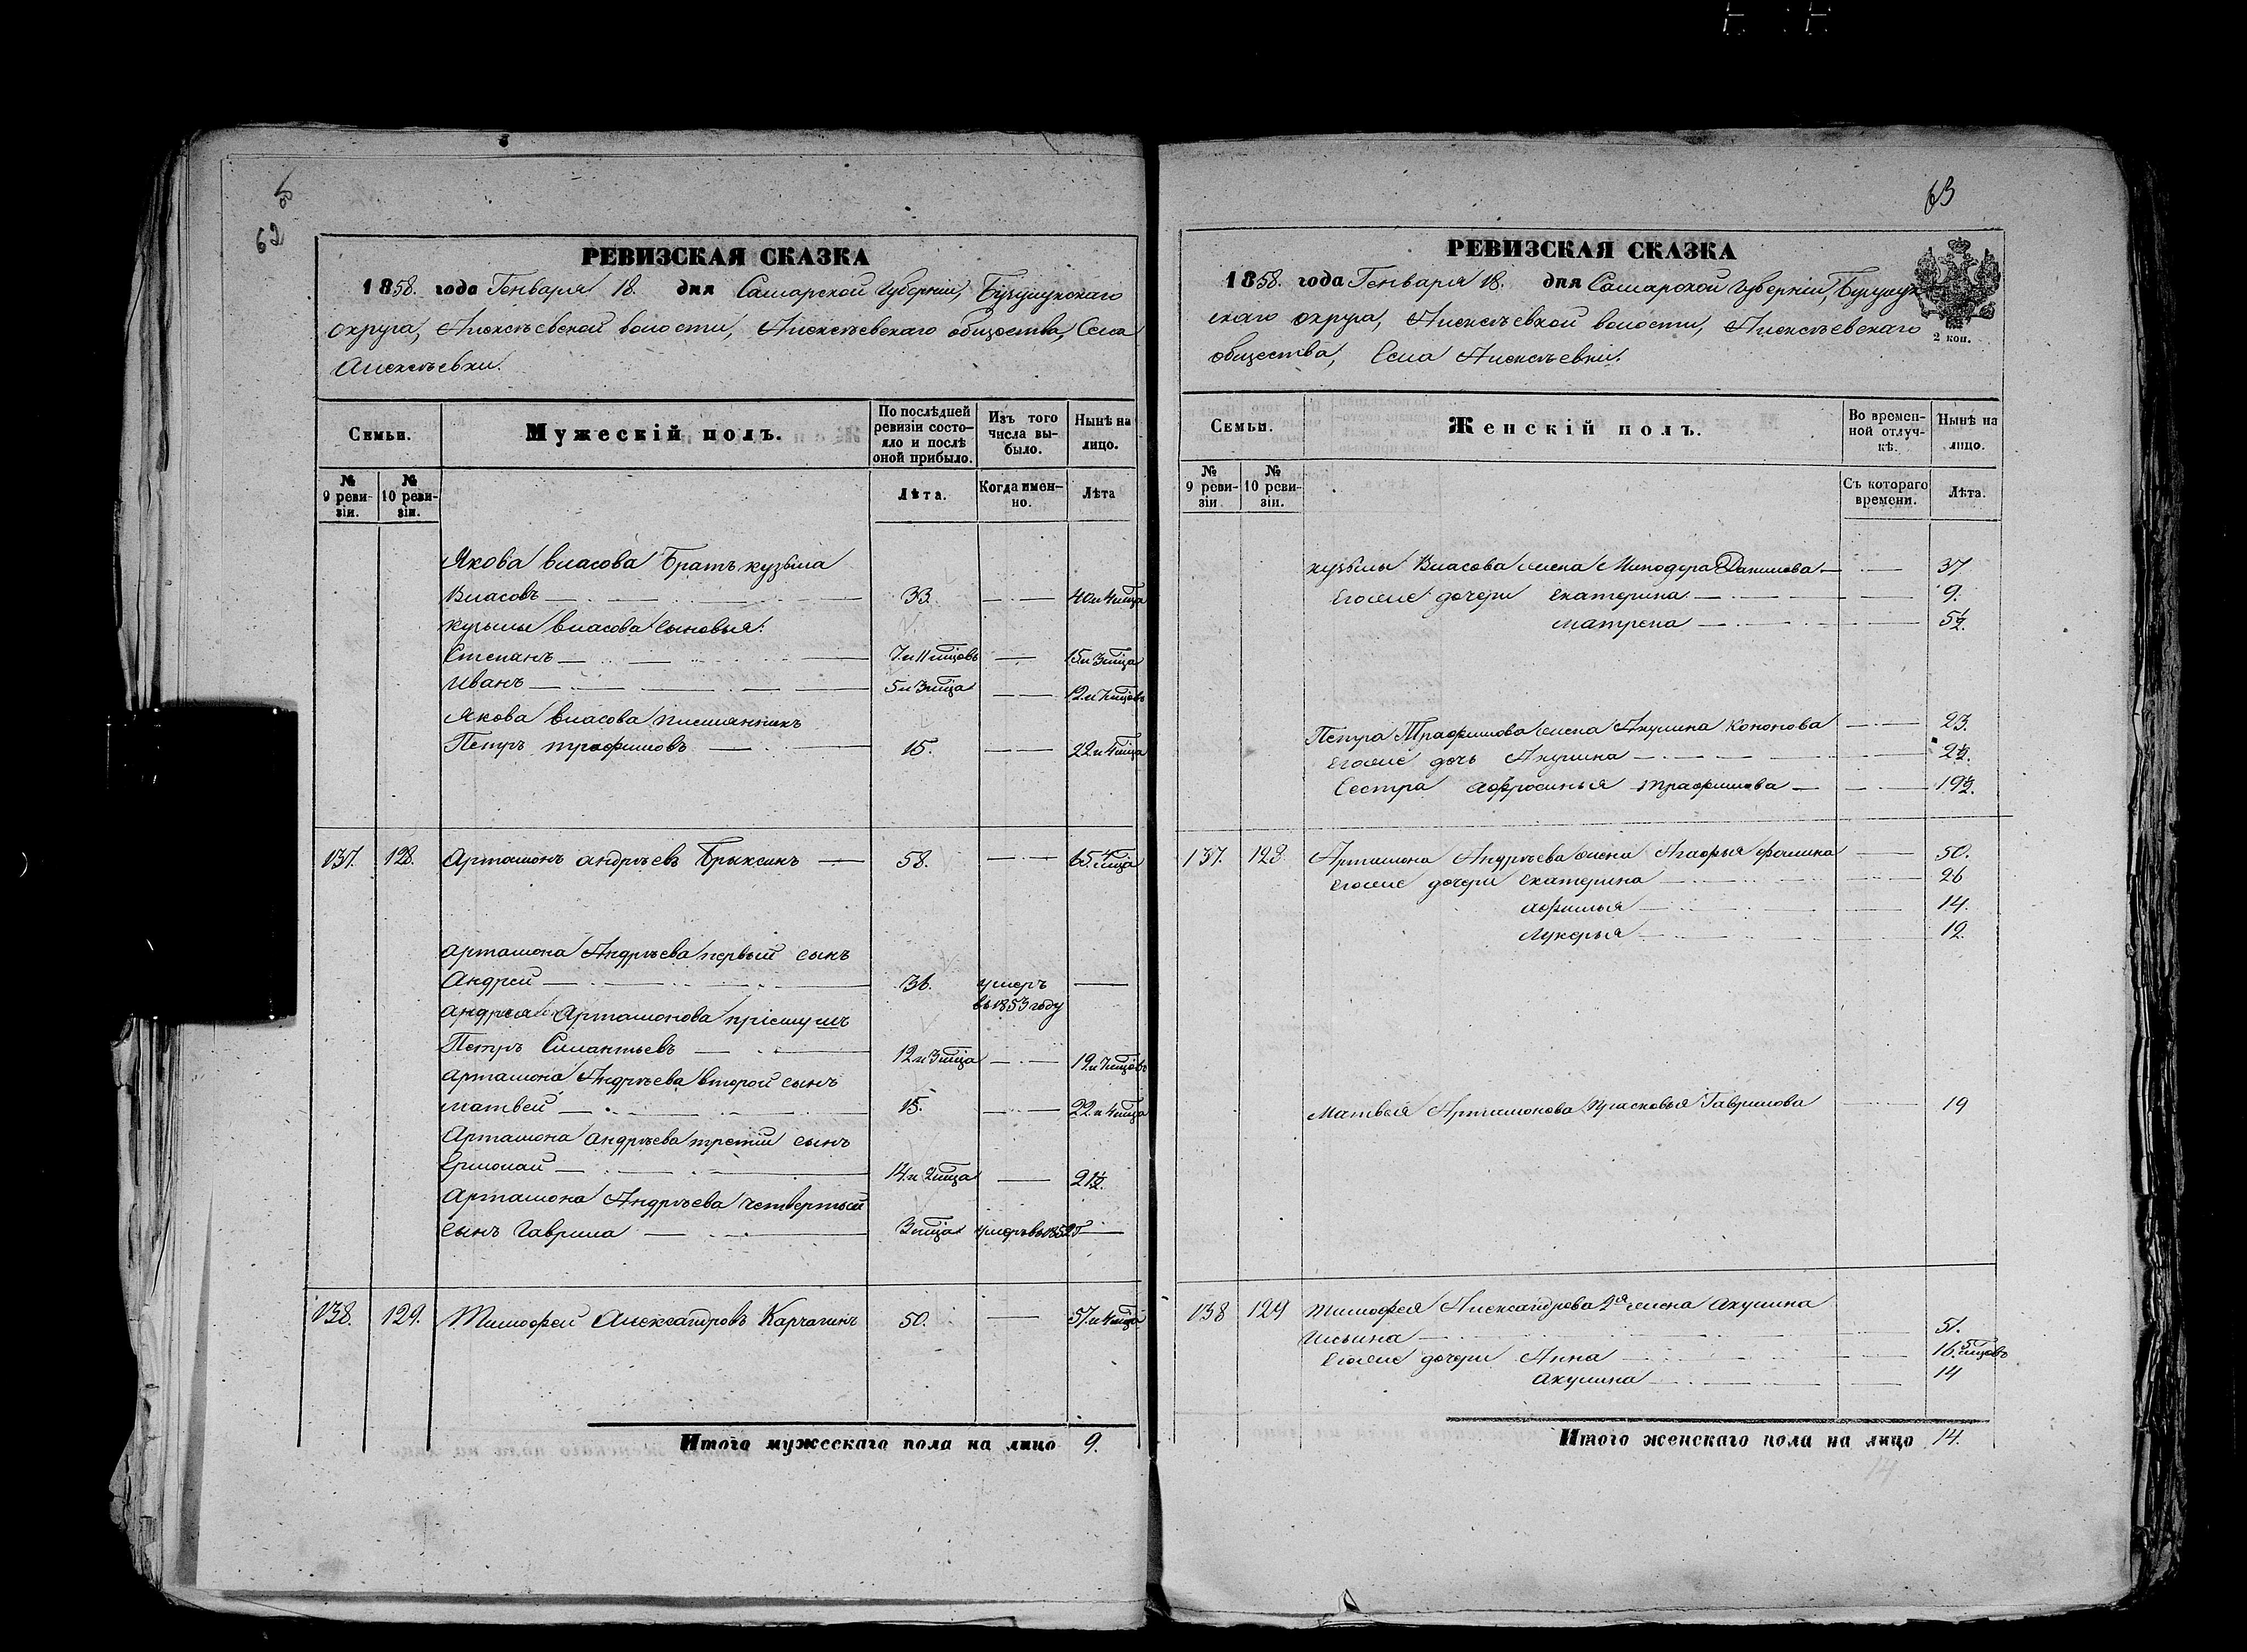 62
РЕВИЗСКАЯ СКАЗКА
1858. года Генваря 18. дня Самарской Губерніи, Бугурусланскаго
округа, Алексѣевской волости, Алексѣевскаго общества, Села
Алексѣевки.
Семьи.
Мужескій полъ.
По послѣдней ревизіи состояло и послѣ оной прибыло.
Изъ того числа выбыло.
Нынѣ на лицо.
№ 9 ревизіи.
№ 10 ревизіи.
Лѣта.
Когда именно.
Лѣта
Якова Власова Братъ кузьма
Власовъ 33. 40 и 4 мѣца
Кузьмы Власова Сыновья:
Степанъ 7 и 11 мцовъ 15 и 3 мѣца
Иванъ 5 и 3 мѣца 12 и 7 мцовъ
Якова Власова племянникъ
Петръ трофимовъ 15. 22 и 4 мѣца
137. 128. Артамонъ андрѣевъ Брыксинъ 58. 65. 4 мѣца
Артамона Андрѣева первый сынъ
Андрей 36. умеръ въ 1853 году
Андрея Артамонова пріемышъ
Петръ Силантьевъ 12 и 3 мѣца 19 и 7 мцовъ
Артамона Андрѣева второй сынъ
матвей 15. 22 и 4 мѣца
Артамона андрѣева третій сынъ
Ермолай 14 и 2 мѣца 21½.
Артамона Андрѣева четвертый
сынъ Гаврила 3 мѣца умеръ въ 1852 г
138. 129. Тимофей Александровъ Карчагинъ 50. 57. и 4 мѣца
Итого мужескаго пола на лицо 9.
63
РЕВИЗСКАЯ СКАЗКА
1858. года Генваря 18. дня Самарской Губерніи,
скаго округа, Алексѣевкой волости, Алексѣевскаго
2 коп.
общества, Села Алексѣевки.
Семьи.
Женскій полъ.
Во временной отлучкѣ.
Нынѣ на лицо.
№ 9 ревизіи
№ 10 ревизіи.
Съ котораго времени.
Лѣта.
кузьмы Власова жена Минодора Данилова 37
Егоже дочери Екатерина 9.
матрена 5½.
Петра Трафимова жена Акулина Кононова 23.
Егоже дочь Акулина 2½.
Сестра Афросинья трафимова 19½.
137. 128. Артамона Андрѣева жена Агафья фомина 50.
Егоже дочери Екатерина 26
Афимья 14.
Лукерья 12.
Матвея Артамонова Прасковья Гаврилова 19
138 129 Тимофея Александрова 2я жена Акулина
Ильина 51.
Егоже дочери Анна 16. 5 мцовъ
Акулина 14
Итого женскаго пола на лицо 14.
14